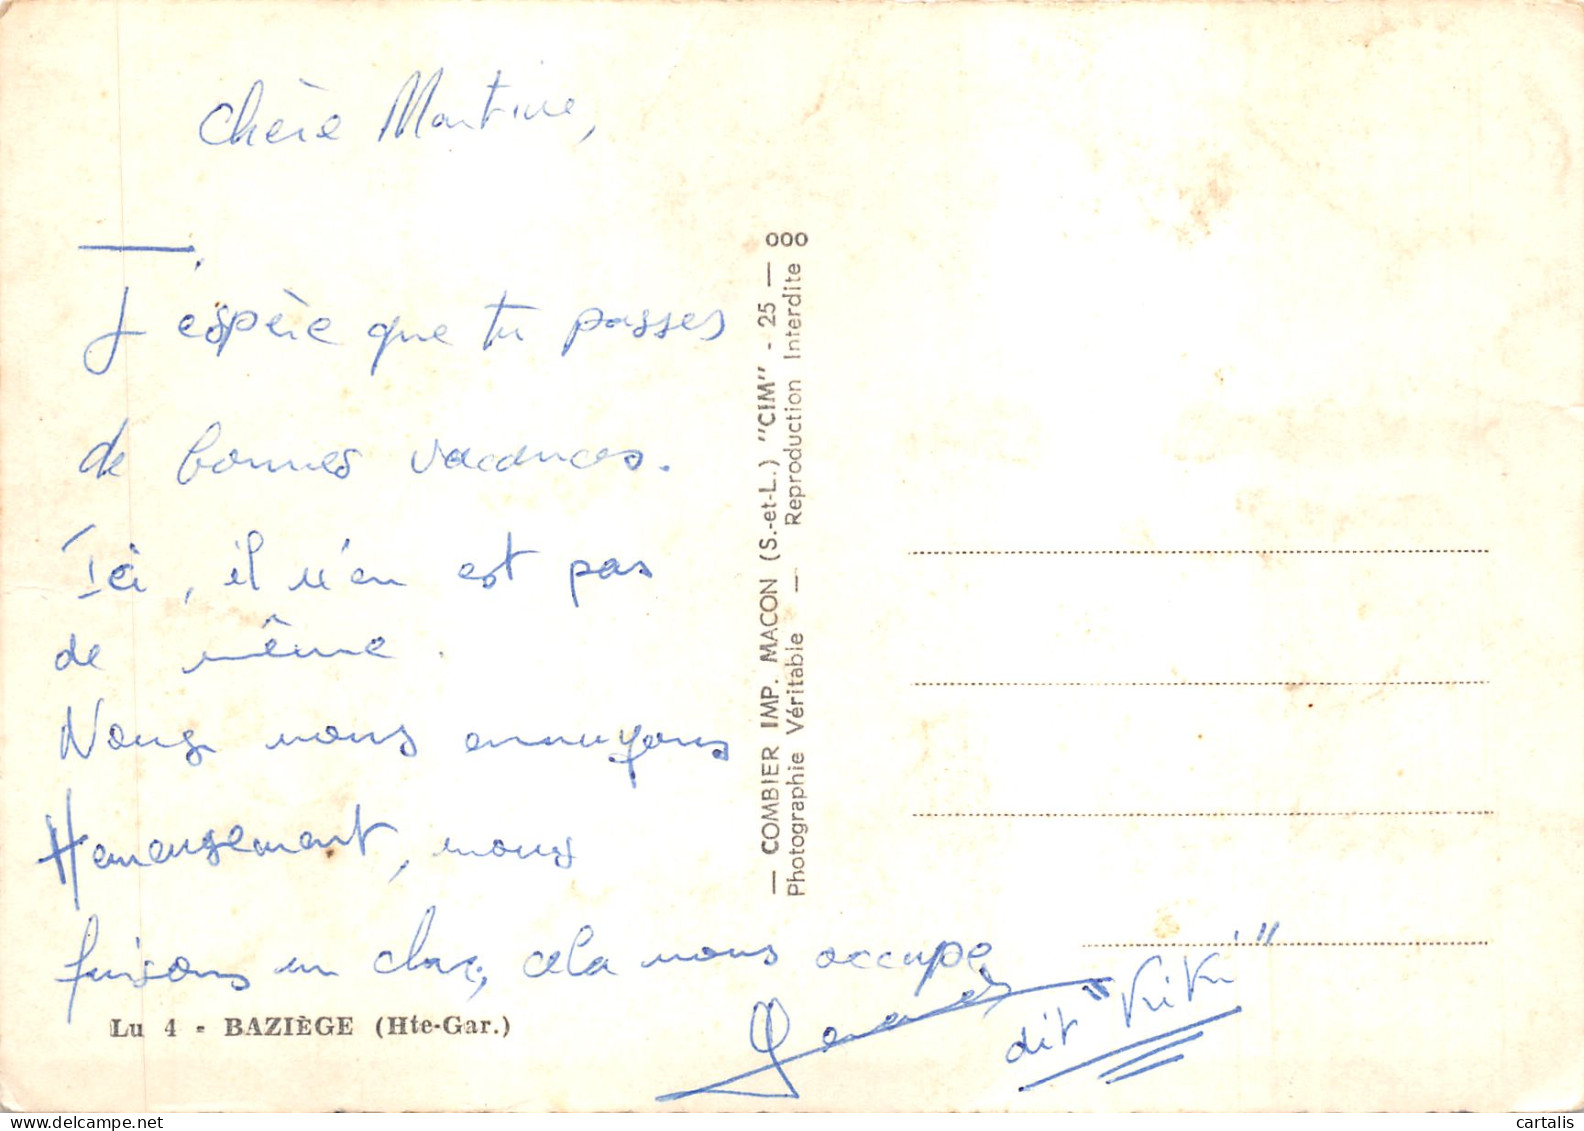 Chère Martine,
J'espère que tu passes
de bonnes vacances.
Ici, il n'en est pas
de même.
Nous nous ennuyons
Heureusement, nous
faisons un, cela nous occupe
dit "KiKi"
Lu 4 - BAZIÈGE (Hte-Gar.)
— COMBIER IMP. MACON (S.-et-L.) "CIM" - 25 — 000
Photographie Véritable — Reproduction Interdite
cartalis
delcampe.net